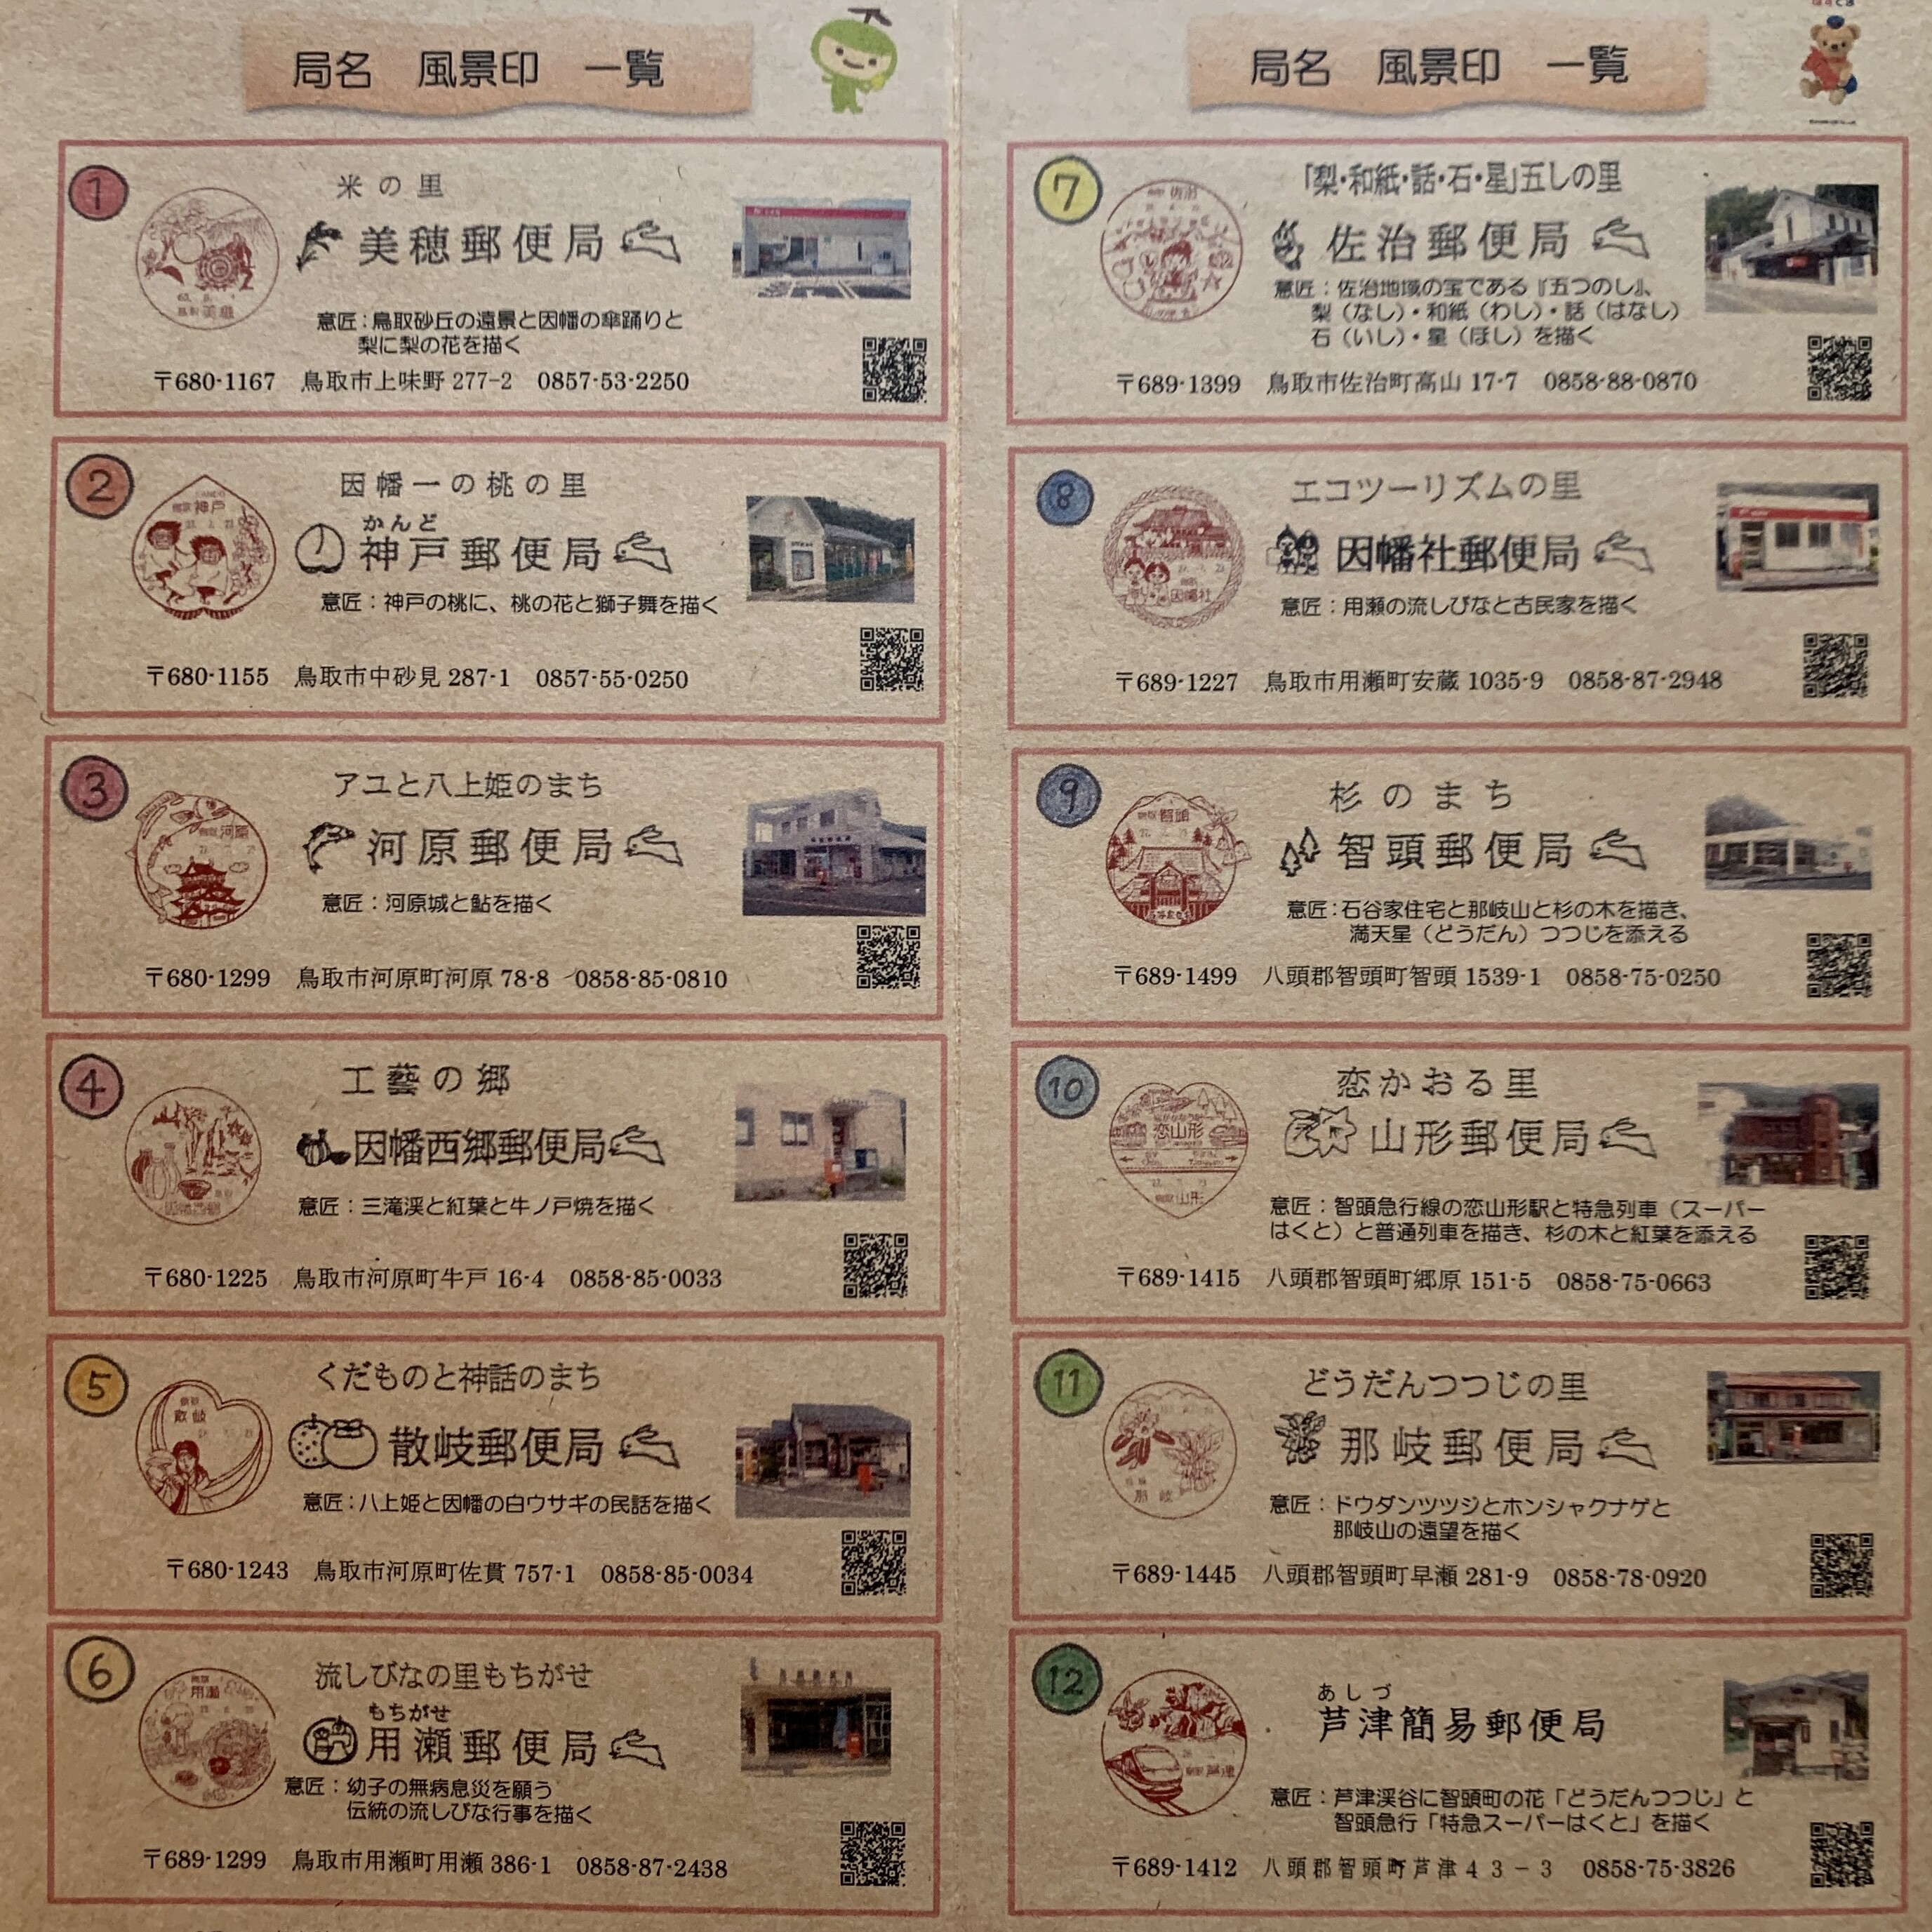 局名 風景印 一覧
1
米の里
美穂郵便局
美穂
意匠：鳥取砂丘の遠景と因幡の傘踊りと
梨に梨の花を描く
〒680-1167 鳥取市上味野 277-2 0857-53-2250
2
因幡一の桃の里
かんど
神戸郵便局
神戸
意匠：神戸の桃に、桃の花と獅子舞を描く
〒680-1155 鳥取市中砂見 287-1 0857-55-0250
3
アユと八上姫のまち
河原郵便局
河原
意匠：河原城と鮎を描く
〒680-1299 鳥取市河原町河原 78-8 0858-85-0810
4
工藝の郷
因幡西郷郵便局
意匠：三滝渓と紅葉と牛ノ戸焼を描く
〒680-1225 鳥取市河原町牛戸 16-4 0858-85-0033
5
くだものと神話のまち
散岐郵便局
散岐
意匠：八上姫と因幡の白ウサギの民話を描く
〒680-1243 鳥取市河原町佐貫 757-1 0858-85-0034
6
流しびなの里もちがせ
もちがせ
用瀬郵便局
用瀬
意匠：幼子の無病息災を願う
伝統の流しびな行事を描く
〒689-1299 鳥取市用瀬町用瀬 386-1 0858-87-2438
局名 風景印 一覧
7
「梨・和紙・話・石・星」五しの里
佐治郵便局
佐治
意匠：佐治地域の宝である『五つのし』、
梨（なし）・和紙（わし）・話（はなし）
石（いし）・星（ほし）を描く
〒689-1399 鳥取市佐治町高山 17-7 0858-88-0870
8
エコツーリズムの里
因幡社郵便局
因幡社
意匠：用瀬の流しびなと古民家を描く
〒689-1227 鳥取市用瀬町安蔵 1035-9 0858-87-2948
9
杉のまち
智頭郵便局
智頭
意匠：石谷家住宅と那岐山と杉の木を描き、
満天星（どうだん）つつじを添える
〒689-1499 八頭郡智頭町智頭 1539-1 0858-75-0250
10
恋かおる里
山形郵便局
恋山形
山形
意匠：智頭急行線の恋山形駅と特急列車（スーパー
はくと）と普通列車を描き、杉の木と紅葉を添える
〒689-1415 八頭郡智頭町郷原 151-5 0858-75-0663
11
どうだんつつじの里
那岐郵便局
那岐
意匠：ドウダンツツジとホンシャクナゲと
那岐山の遠望を描く
〒689-1445 八頭郡智頭町早瀬 281-9 0858-78-0920
12
あしづ
芦津簡易郵便局
芦津
意匠：芦津渓谷に智頭町の花「どうだんつつじ」と
智頭急行「特急スーパーはくと」を描く
〒689-1412 八頭郡智頭町芦津４３－３ 0858-75-3826